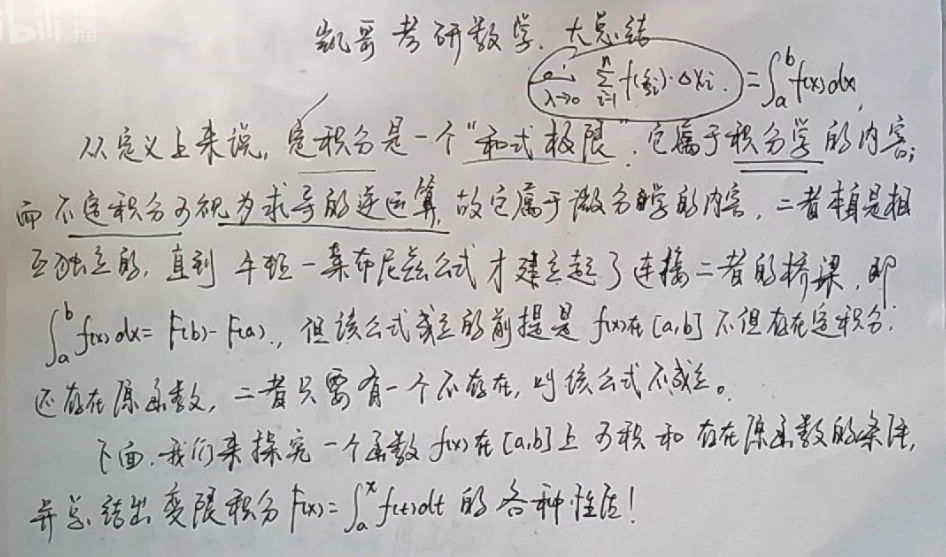 bilibili 直播
凯哥考研数学、大总结
lim λ→0 Σ_{i=1}^{n} f(ξi)·Δxi. = ∫_a^b f(x)dx,
从定义上来说,定积分是一个"和式极限",它属于积分学的内容;
而不定积分可视为求导的逆运算,故它属于微分学的内容,二者本身是相
互独立的,直到牛顿-莱布尼兹公式才建立起了连接二者的桥梁,即
∫_a^b f(x)dx=F(b)-F(a).,但该公式成立的前提是f(x)在[a,b]不但存在定积分,
还存在原函数,二者只要有一个不存在,则该公式不成立。
下面,我们来探究一个函数f(x)在[a,b]上可积和存在原函数的条件,
并总结出变限积分F(x)=∫_a^x f(t)dt的各种性质!